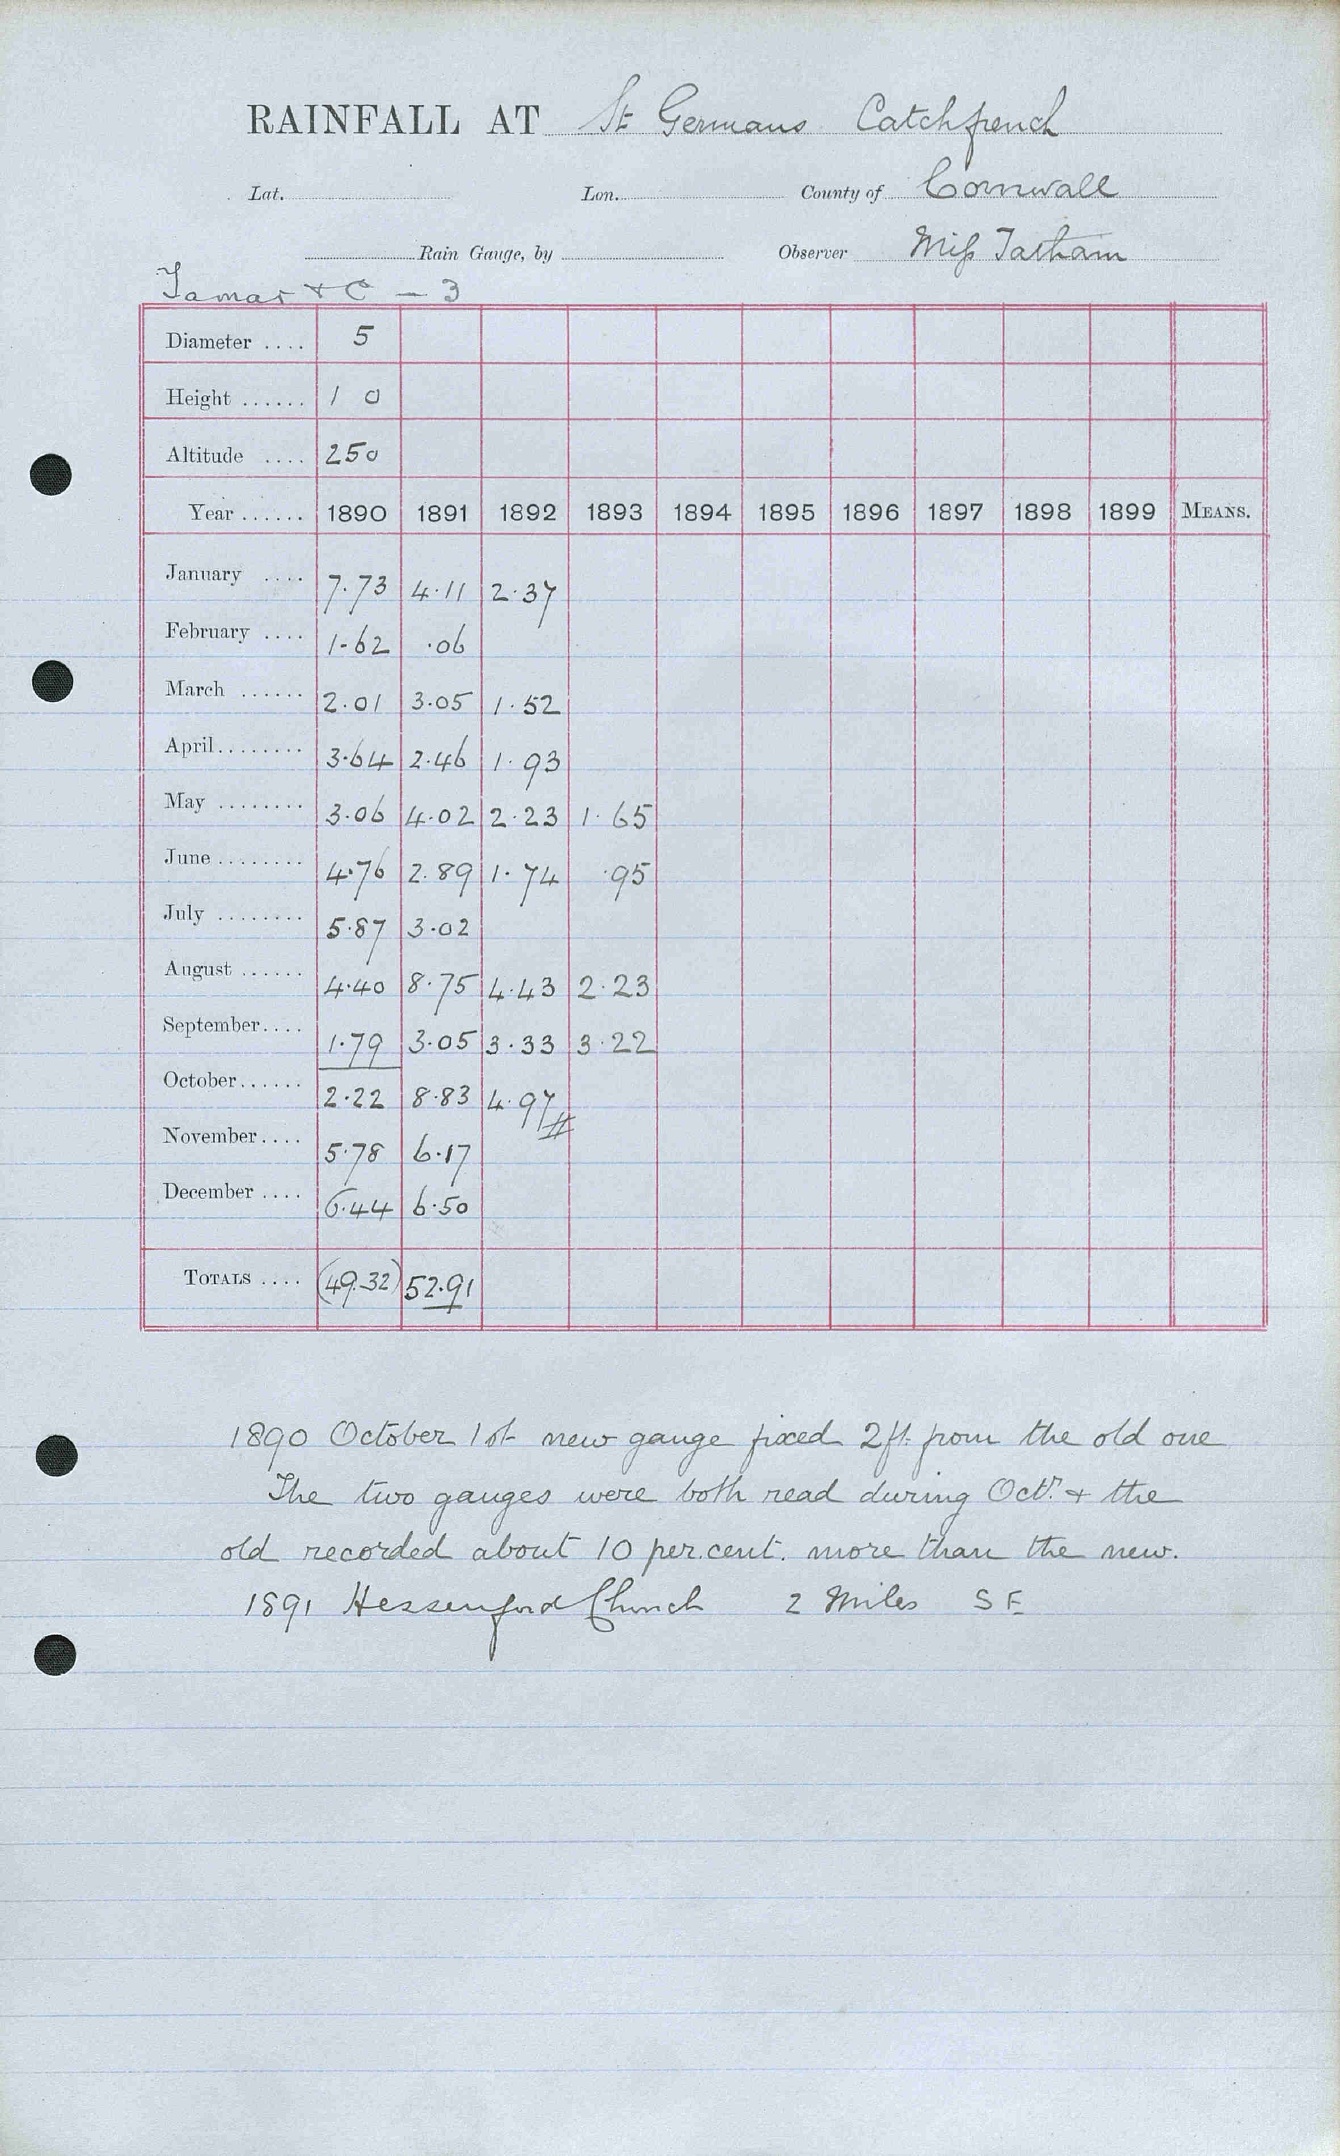 RAINFALL AT St Germans Catchfrench
Lat. Lon. County of Cornwall
Rain Gauge, by Observer Miss Tatham
Tamar & C — 3
Diameter .... 5
Height ...... 1 0
Altitude .... 250
Year ...... 1890 1891 1892 1893 1894 1895 1896 1897 1898 1899 MEANS.
January .... 7.73 4.11 2.37
February .... 1.62 .06
March ...... 2.01 3.05 1.52
April ........ 3.64 2.46 1.93
May ........ 3.06 4.02 2.23 1.65
June ........ 4.76 2.89 1.74 .95
July ........ 5.87 3.02
August ...... 4.40 8.75 4.43 2.23
September.... 1.79 3.05 3.33 3.22
October...... 2.22 8.83 4.97
November.... 5.78 6.17
December .... 6.44 6.50
TOTALS .... (49.32) 52.91
1890 October 1st new gauge fixed 2ft. from the old one
The two gauges were both read during Octr. & the
old recorded about 10 per.cent. more than the new.
1891 Hessenford Church 2 Miles S E